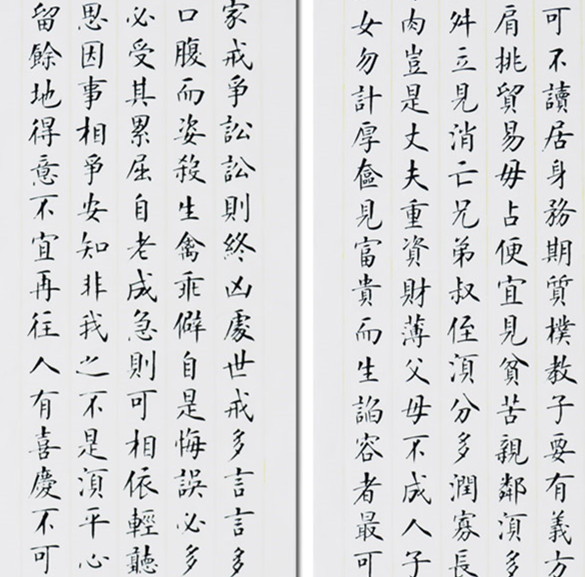 可不讀居身務期質樸教子要有義方
肩挑貿易毋占便宜見貧苦親鄰湏多
舛立見消亡兄弟叔侄湏分多潤寡長
肉豈是丈夫重資財薄父母不成人子
女勿計厚奩見富貴而生諂容者最可
家戒爭訟訟則終凶處世戒多言言多
口腹而姿殺生禽乖僻自是悔誤必多
必受其累屈自老成急則可相依輕聽
思因事相爭安知非我之不是湏平心
留餘地得意不宜再往人有喜慶不可